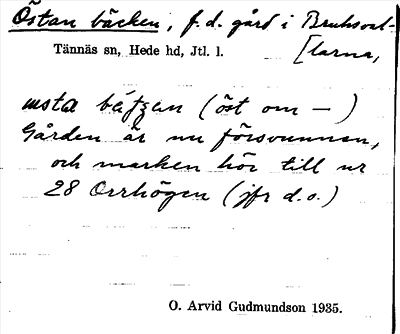 Östan bäcken, f.d. gård i Bruksval-
[larna,
Tännäs sn, Hede hd, Jtl. l.
(öst om — )
Gården är nu försvunnen,
och marken hör till nr
28 Orrhögen (jfr d.o.)
O. Arvid Gudmundson 1935.